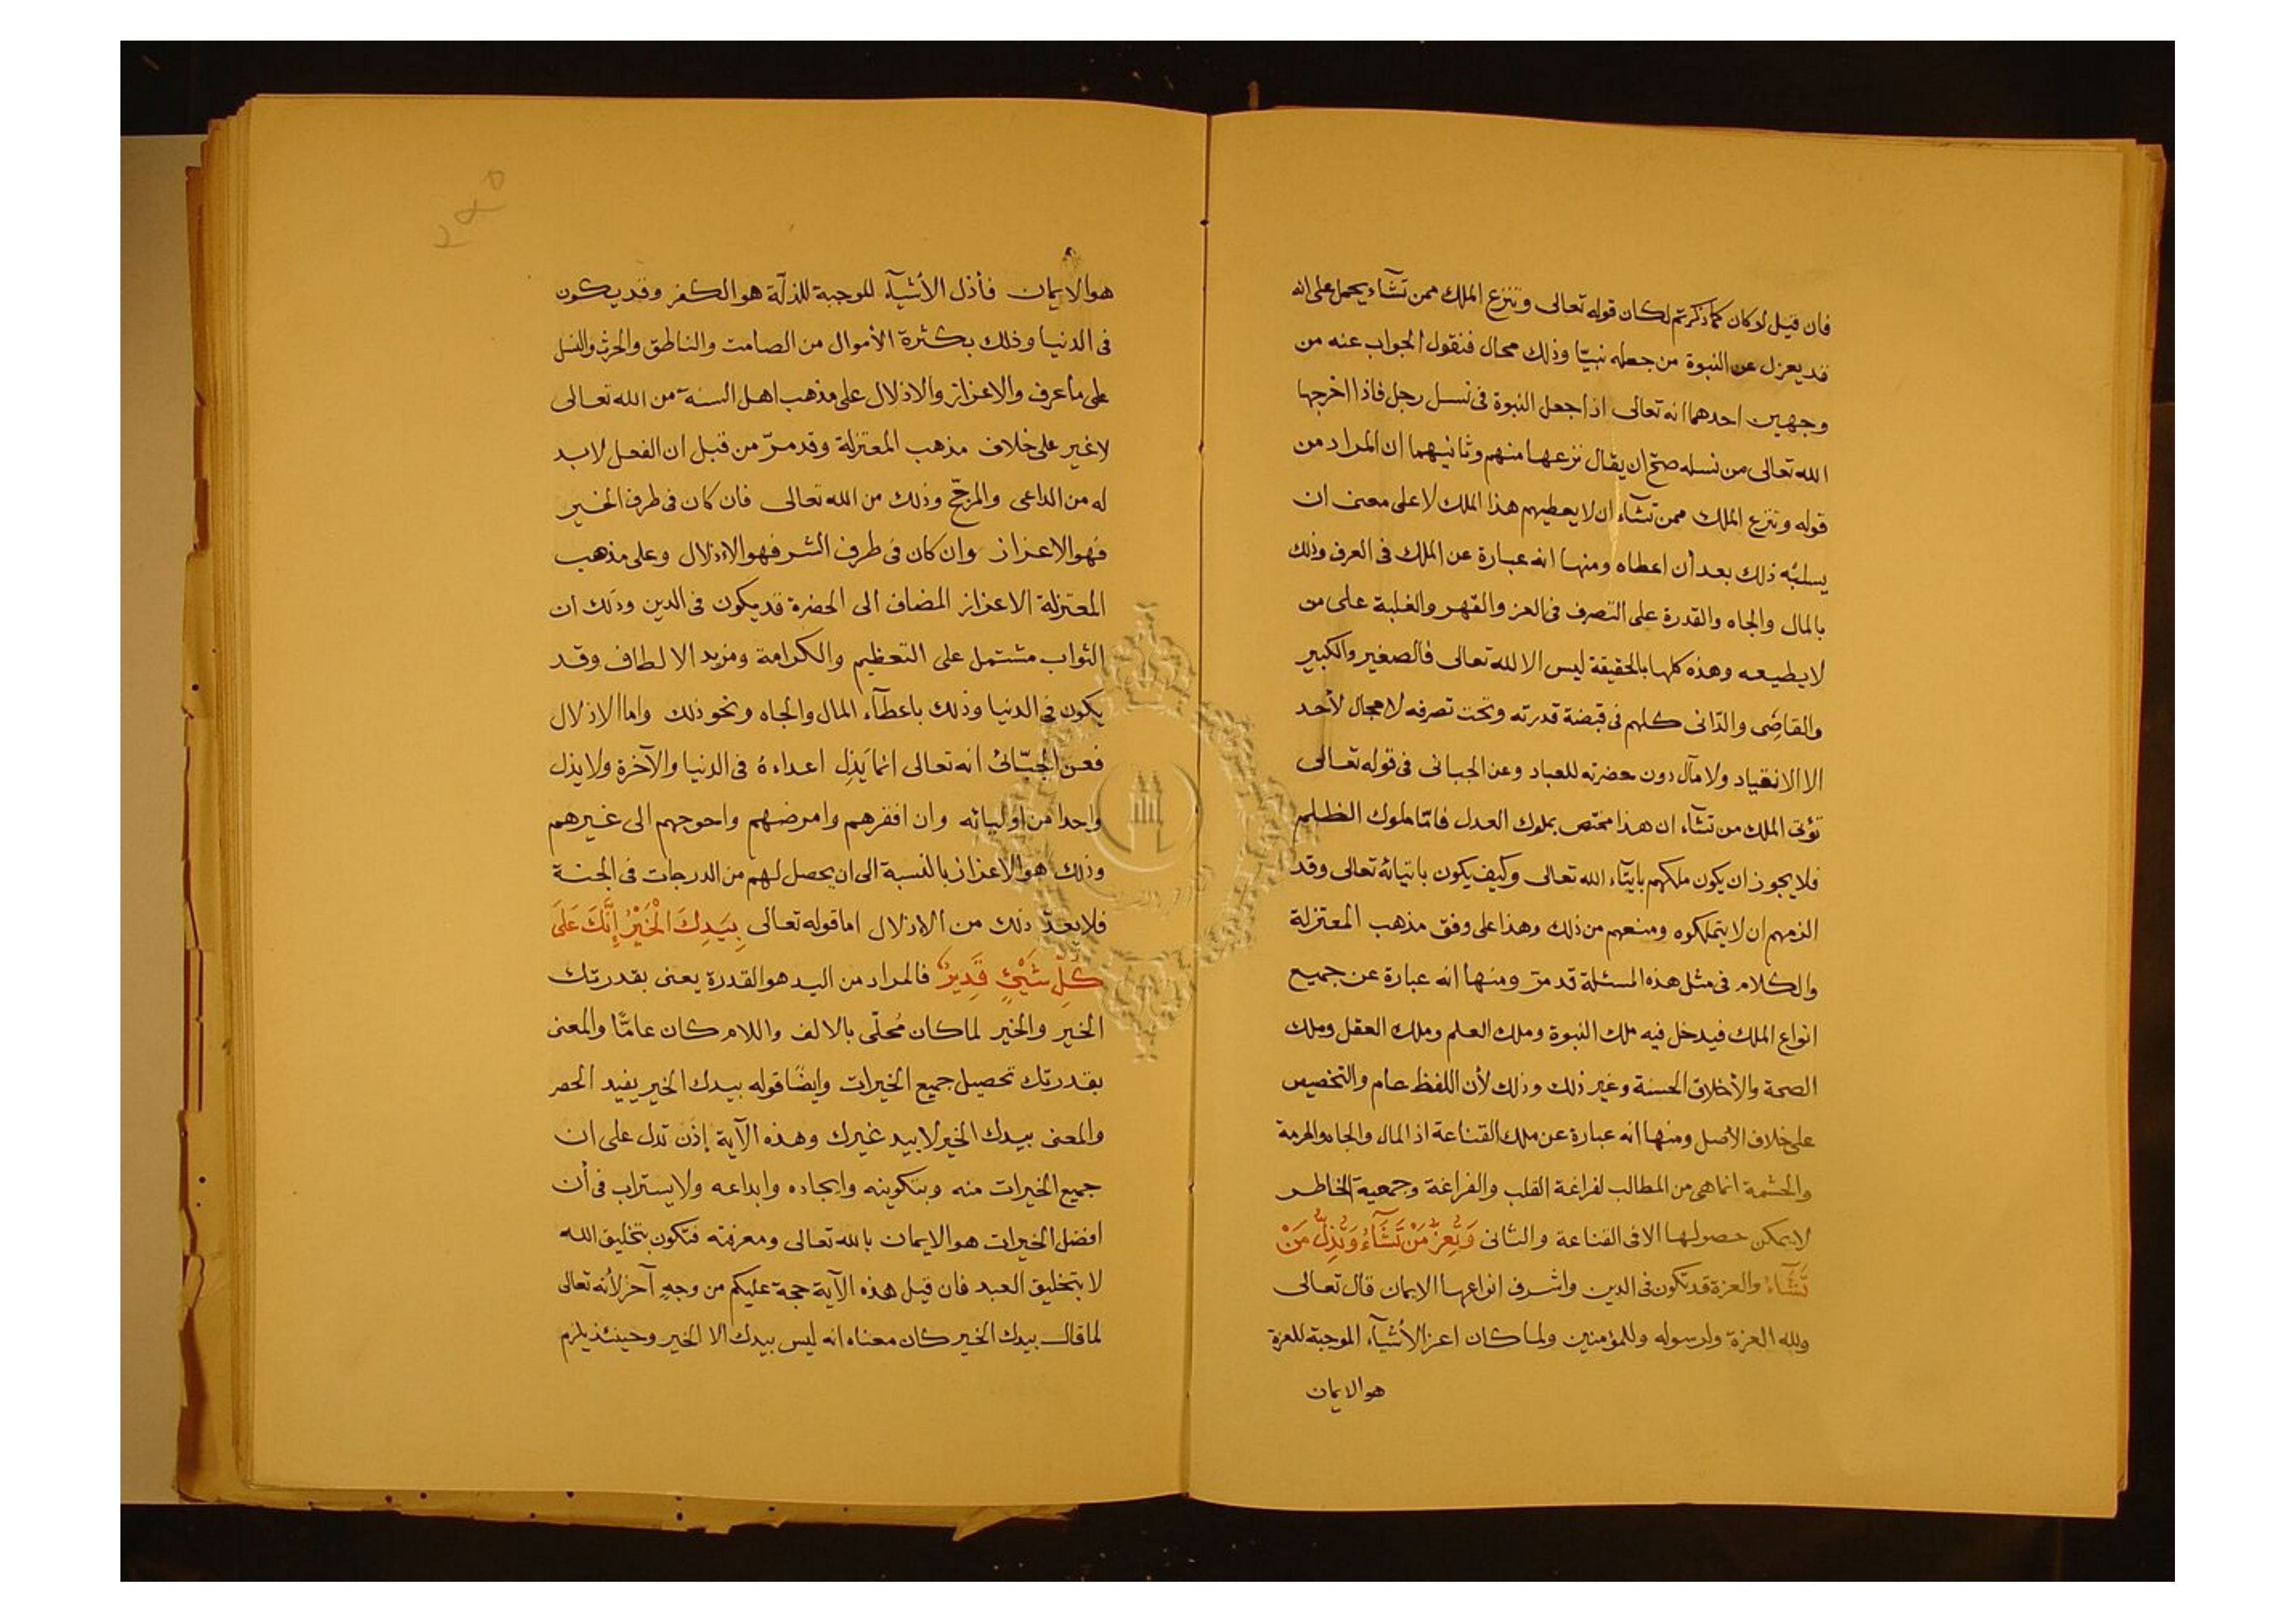 فان قيل لو كان كما ذكرتم لكان قوله تعالى وتنزع الملك ممن تشآء يحمل على انه
قد يعزل عن النبوة من جعله نبيّا وذلك محال فنقول الجواب عنه من
وجهين احدهما انه تعالى اذا جعل النبوة فى نسل رجل فاذا اخرجها
الله تعالى من نسله صحّ ان يقال نزعها منهم وثانيهما ان المراد من
قوله وتنزع الملك ممن تشآء ان لا يعطيهم هذا الملك لا على معنى ان
يسلبه ذلك بعد أن اعطاه ومنها انه عبارة عن الملك فى العرف وذلك
بالمال والجاه والقدرة على التصرف فى العز والقهر والغلبة على من
لا يطيعه وهذه كلها بالحقيقة ليس الا لله تعالى فالصغير والكبير
والقاصِى والدّانى كلهم فى قبضة قدرته وتحت تصرفه لا مجال لأحد
الا الانقياد ولا مآل دون حضرته للعباد وعن الجبائى فى قوله تعالى
تؤتى الملك من تشآء ان هذا مختص بملوك العدل فامّا ملوك الظلم
فلا يجوز ان يكون ملكهم بايتآء الله تعالى وكيف يكون باتيائه تعالى وقد
الزمهم ان لا يتملكوه ومنعهم من ذلك وهذا على وفق مذهب المعتزلة
والكلام فى مثل هذه المسئلة قد مرّ ومنها انه عبارة عن جميع
انواع الملك فيدخل فيه ملك النبوة وملك العلم وملك العقل وملك
الصحة والأخلاق الحسنة وغير ذلك وذلك لأن اللفظ عام والتخصيص
على خلاف الأصل ومنها انه عبارة عن ملك القناعة اذ المال والجاه والحرمة
والحشمة انما هى من المطالب لفراغة القلب والفراغة وجمعية الخاطر
لا يمكن حصولها الا فى القناعة والثانى وَتُعِزُّ مَنْ تَشَآءُ وَتُذِلُّ مَنْ
تَشَآءُ والعزة قد تكون فى الدين واشرف انواعها الايمان قال تعالى
ولله العزة ولرسوله وللمؤمنين ولما كان اعز الأشيآء الموجبة للعزة
هو الايمان
هو الايمان فأذل الأشيآء للوجبة للذلّة هو الكفر وقد يكون
فى الدنيا وذلك بكثرة الأموال من الصامت والناطق والحرث والنسل
على ما عرف والاعزاز والاذلال على مذهب اهل السنة من الله تعالى
لا غير على خلاف مذهب المعتزلة وقد مرّ من قبل ان الفعل لا بد
له من الداعى والمرجّح وذلك من الله تعالى فان كان فى طرف الخير
فهو الاعزاز وان كان فى طرف الشر فهو الاذلال وعلى مذهب
المعتزلة الاعزاز المضاف الى الحضرة قد يكون فى الدين وذلك ان
الثواب مشتمل على التعظيم والكرامة ومزيد الالطاف وقد
يكون فى الدنيا وذلك باعطآء المال والجاه ونحو ذلك واما الاذلال
فعن الجبّائى انه تعالى انما يَذِل اعداءهُ فى الدنيا والآخرة ولا يذل
واحدا من اوليائه وان افقرهم وامرضهم واحوجهم الى غيرهم
وذلك هو الاعزاز بالنسبة الى ان يحصل لهم من الدرجات فى الجنة
فلا يعدّ ذلك من الاذلال اما قوله تعالى بِيَدِكَ الْخَيْرُ إِنَّكَ عَلَى
كُلِّ شَيْءٍ قَدِيرٌ فالمراد من اليد هو القدرة يعنى بقدرتك
الخير والخير لما كان مُحلّى بالالف واللام كان عامًّا والمعنى
بقدرتك تحصيل جميع الخيرات وايضًا قوله بيدك الخير يفيد الحصر
والمعنى بيدك الخير لا بيد غيرك وهذه الآية إذن تدل على ان
جميع الخيرات منه وبتكوينه وايجاده وابداعه ولا يستراب فى أن
افضل الخيرات هو الايمان بالله تعالى ومعرفته فتكون بتخليق الله
لا بتخليق العبد فان قيل هذه الآية حجة عليكم من وجهٍ آخر لأنه تعالى
لما قال بيدك الخير كان معناه انه ليس بيدك الا الخير وحينئذ يلزم